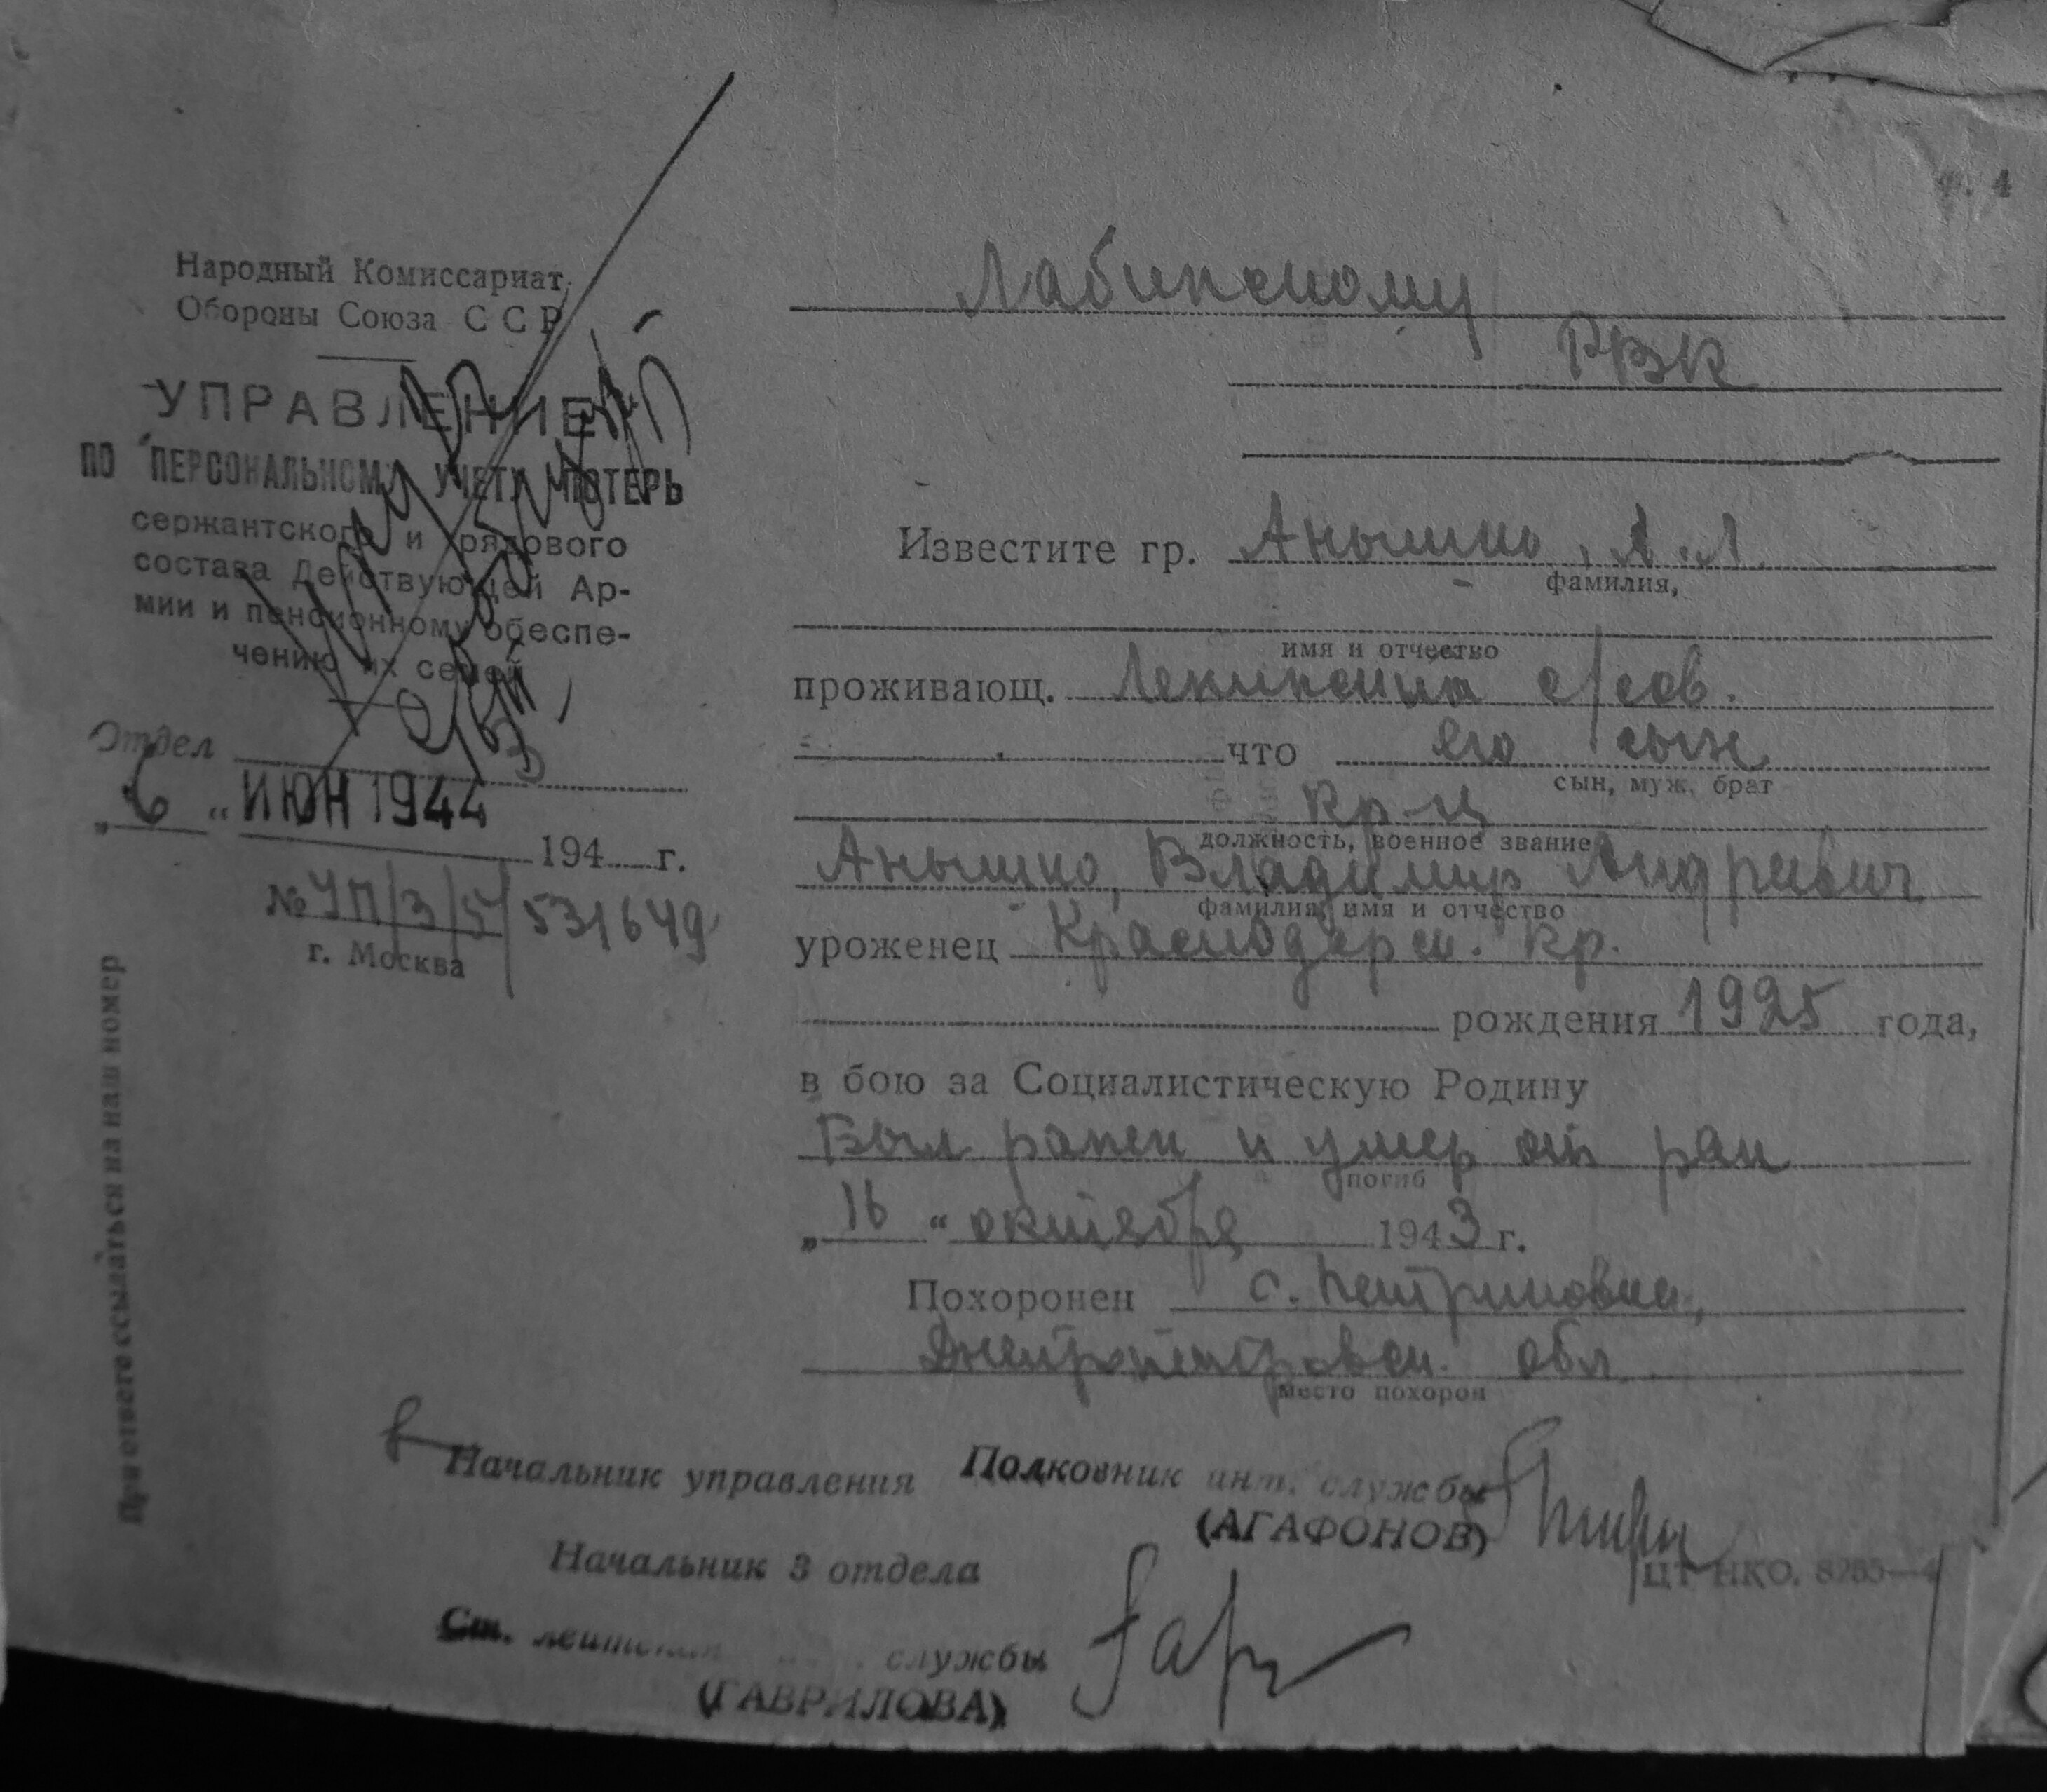 ф. 4
Народный Комиссариат
Обороны Союза ССР
УПРАВЛЕНИЕ
ПО ПЕРСОНАЛЬНОМУ УЧЕТУ ПОТЕРЬ
сержантского и рядового
состава Действующей Ар-
мии и пенсионному обеспе-
чению их семей
Отдел
„6“ ИЮН 1944
194 г.
№ УП/3/5/531649
г. Москва
При ответе ссылаться на наш номер
Лабинскому
РВК
Известите гр. Анышко, А.Л.
фамилия,
имя и отчество
проживающ. Ленинский с/сов.
что его сын
сын, муж, брат
кр-ц
должность, военное звание
Анышко, Владимир Андреевич
фамилия, имя и отчество
уроженец Краснодарск. кр.
рождения 1925 года,
в бою за Социалистическую Родину
Был ранен и умер от ран
погиб
„16“ октября 1943 г.
Похоронен с.
Днепропетровск. обл
место похорон
Начальник управления Полковник инт. службы
(АГАФОНОВ)
Начальник 3 отдела
ЦТ НКО.
Ст. службы
(ГАВРИЛОВА)